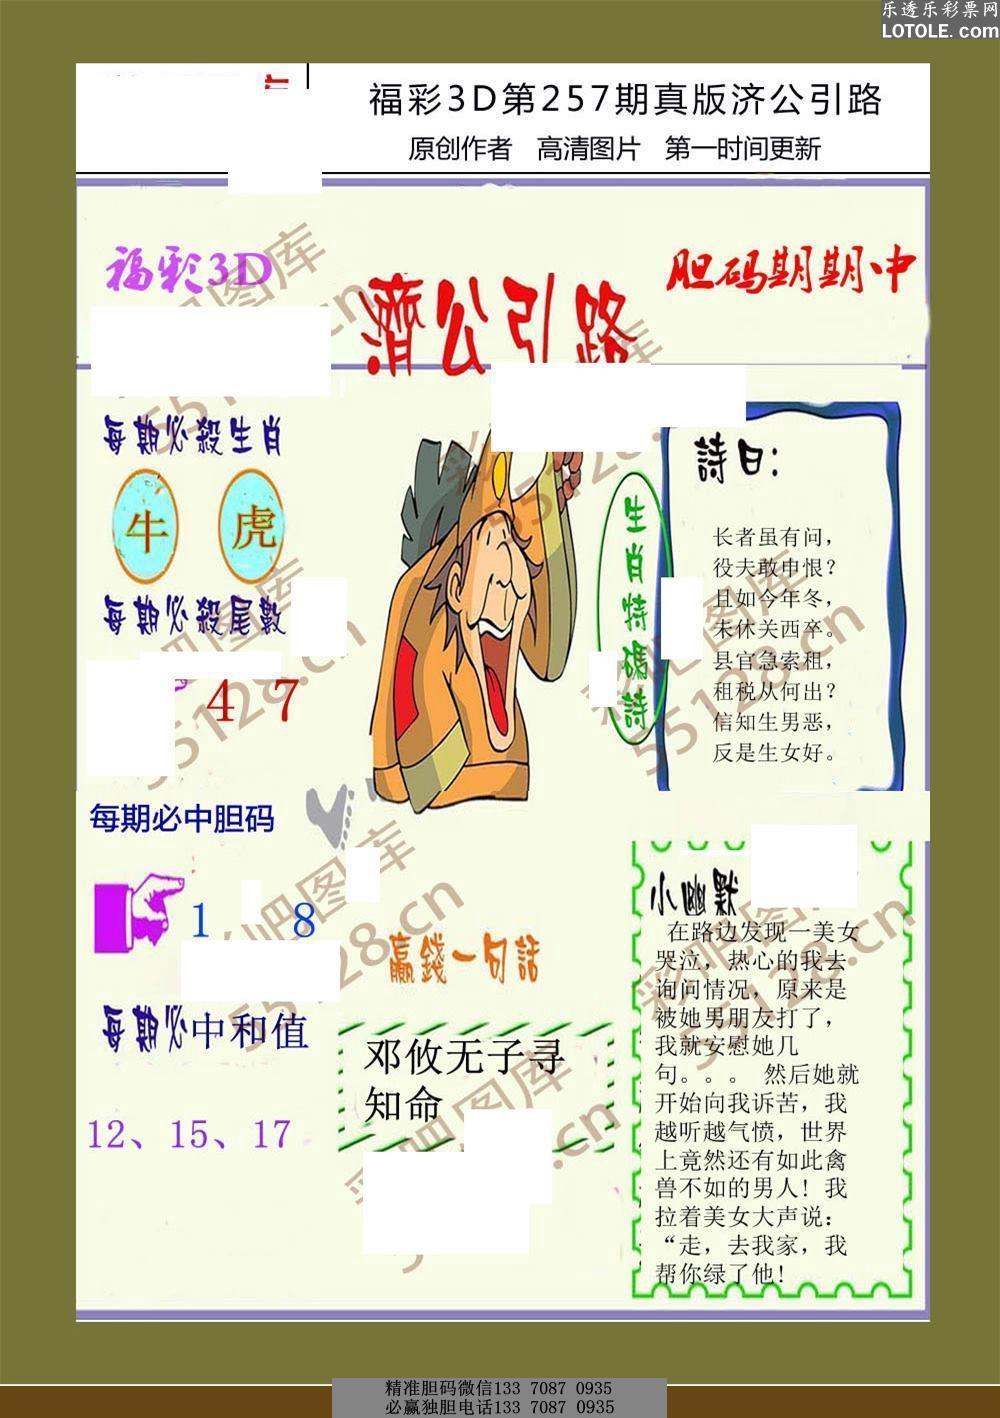 乐透乐彩票网
LOTOLE.com
福彩3D第257期真版济公引路
原创作者 高清图片 第一时间更新
福彩3D
濟公引路
胆码期期中
每期必殺生肖
牛 虎
每期必殺尾數
4 7
每期必中胆码
1 8
每期必中和值
12、15、17
生肖特碼詩
詩曰:
长者虽有问，
役夫敢申恨？
且如今年冬，
未休关西卒。
县官急索租，
租税从何出？
信知生男恶，
反是生女好。
赢錢一句話
邓攸无子寻
知命
小幽默
在路边发现一美女
哭泣，热心的我去
询问情况，原来是
被她男朋友打了，
我就安慰她几
句。。。 然后她就
开始向我诉苦，我
越听越气愤，世界
上竟然还有如此禽
兽不如的男人！我
拉着美女大声说：
“走，去我家，我
帮你绿了他!
彩吧图库
55128.cn
彩吧图库
55128.cn
彩吧图库
55128.cn
彩吧图库
55128.cn
彩吧图库
55128.cn
彩吧图库
55128.cn
精准胆码微信133 7087 0935
必赢独胆电话133 7087 0935